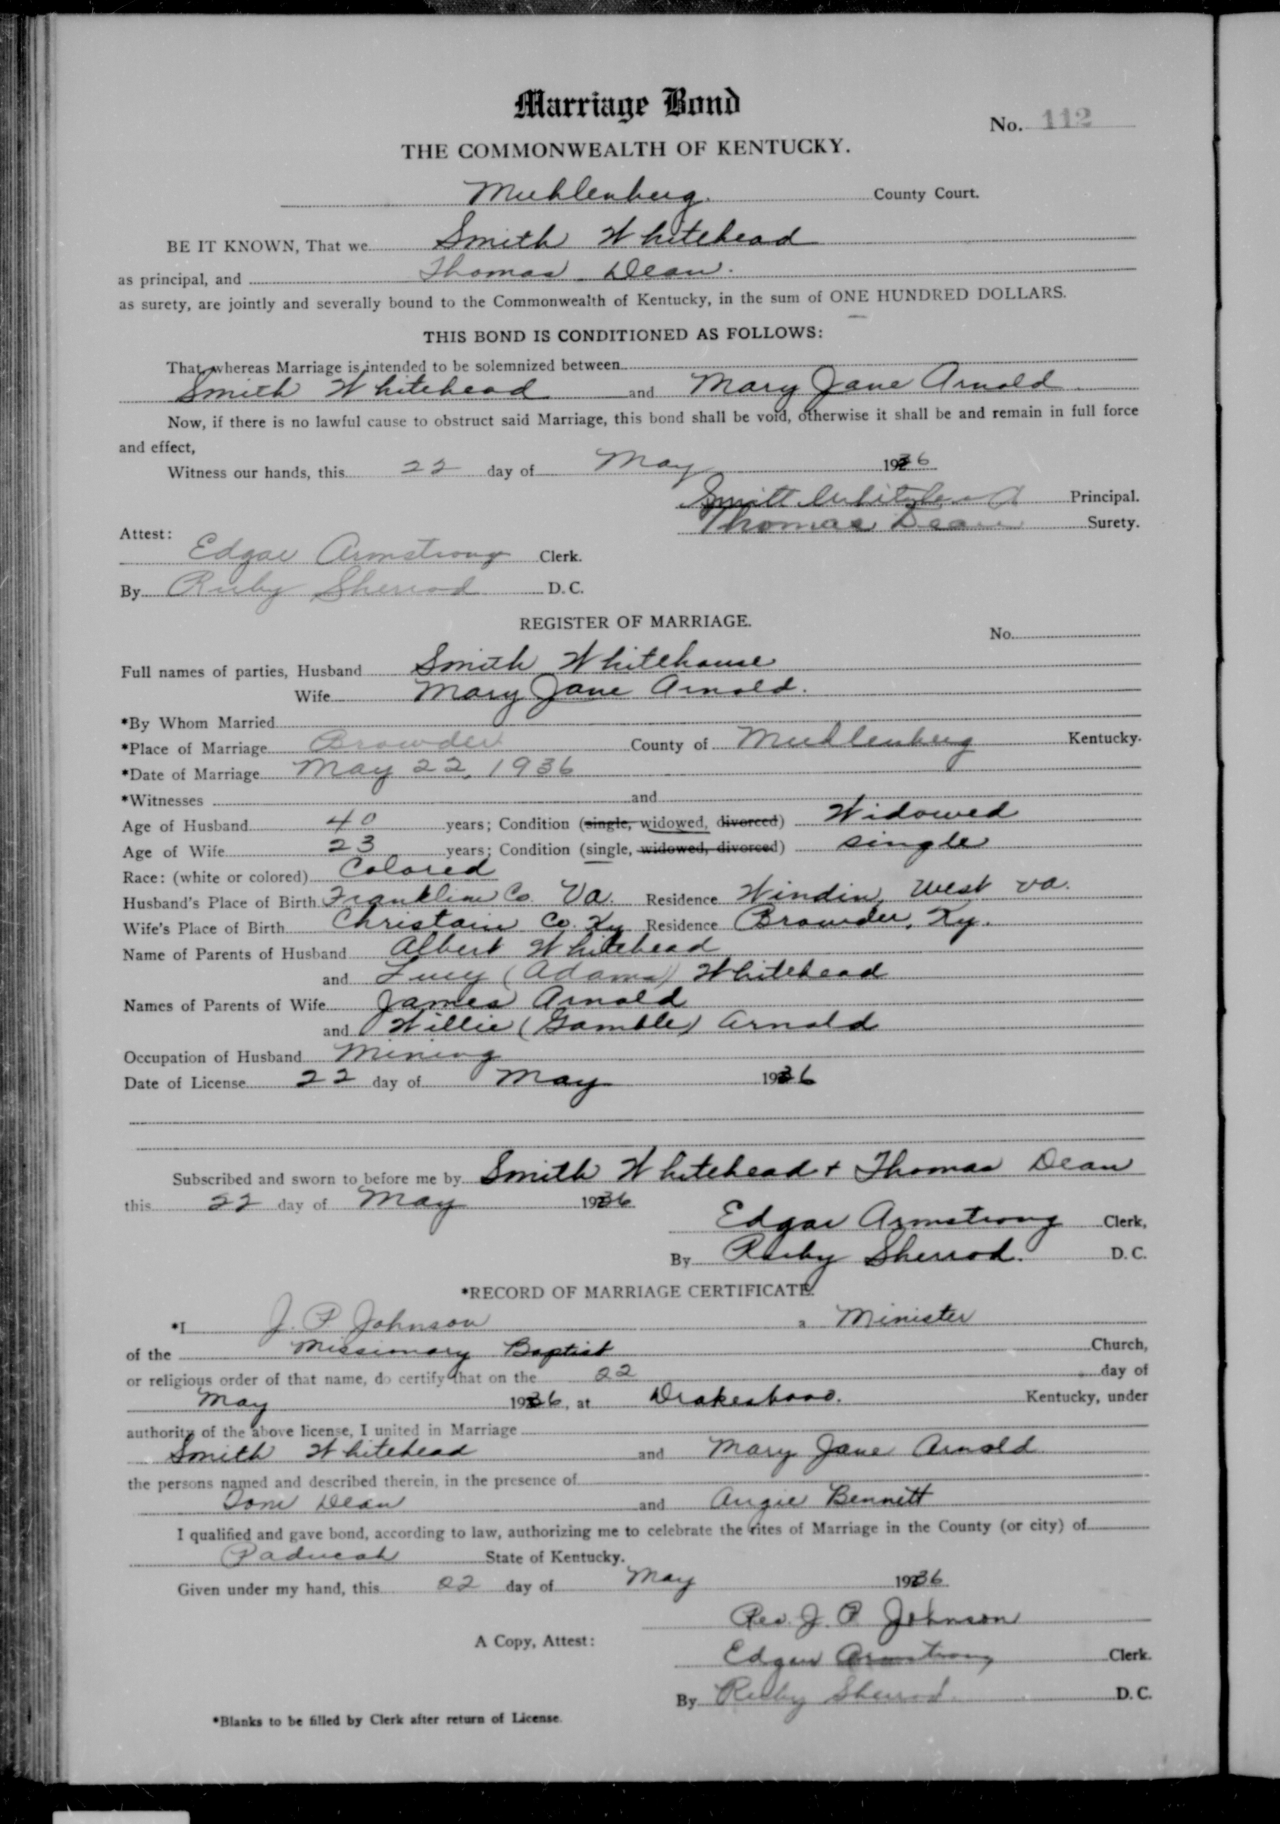 Marriage Bond
No. 112
THE COMMONWEALTH OF KENTUCKY.
Muhlenberg. County Court.
BE IT KNOWN, That we Smith Whitehead
as principal, and Thomas Dean.
as surety, are jointly and severally bound to the Commonwealth of Kentucky, in the sum of ONE HUNDRED DOLLARS.
THIS BOND IS CONDITIONED AS FOLLOWS:
That whereas Marriage is intended to be solemnized between
Smith Whitehead and Mary Jane Arnold.
Now, if there is no lawful cause to obstruct said Marriage, this bond shall be void, otherwise it shall be and remain in full force
and effect,
Witness our hands, this 22 day of May 1936
Smith Whitehead Principal.
Thomas Dean Surety.
Attest:
Edgar Armstrong Clerk.
By Ruby Sherrod D. C.
REGISTER OF MARRIAGE.
No.
Full names of parties, Husband Smith Whitehouse
Wife Mary Jane Arnold.
*By Whom Married
*Place of Marriage Browder County of Muhlenberg Kentucky.
*Date of Marriage May 22, 1936
*Witnesses and
Age of Husband 40 years; Condition (single, widowed, divorced) Widowed
Age of Wife 23 years; Condition (single, widowed, divorced) single
Race: (white or colored) Colored
Husband's Place of Birth Franklin Co. Va. Residence Windin, West Va.
Wife's Place of Birth Christain Co. Ky Residence Browder, Ky.
Name of Parents of Husband Albert Whitehead
and Lucy (Adams) Whitehead
Names of Parents of Wife James Arnold
and Willie (Gamble) Arnold
Occupation of Husband Mining
Date of License 22 day of May 1936
Subscribed and sworn to before me by Smith Whitehead + Thomas Dean
this 22 day of May 1936
Edgar Armstrong Clerk,
By Ruby Sherrod. D. C.
*RECORD OF MARRIAGE CERTIFICATE.
*I J. P. Johnson a Minister
of the Missionary Baptist Church,
or religious order of that name, do certify that on the 22 day of
May 1936, at Drakesboro. Kentucky, under
authority of the above license, I united in Marriage
Smith Whitehead and Mary Jane Arnold
the persons named and described therein, in the presence of
Tom Dean and Angie Bennitt
I qualified and gave bond, according to law, authorizing me to celebrate the rites of Marriage in the County (or city) of
Paducah State of Kentucky.
Given under my hand, this 22 day of May 1936
Rev. J. P. Johnson
A Copy, Attest:
Edgar Armstrong Clerk.
By Ruby Sherrod. D. C.
*Blanks to be filled by Clerk after return of License.